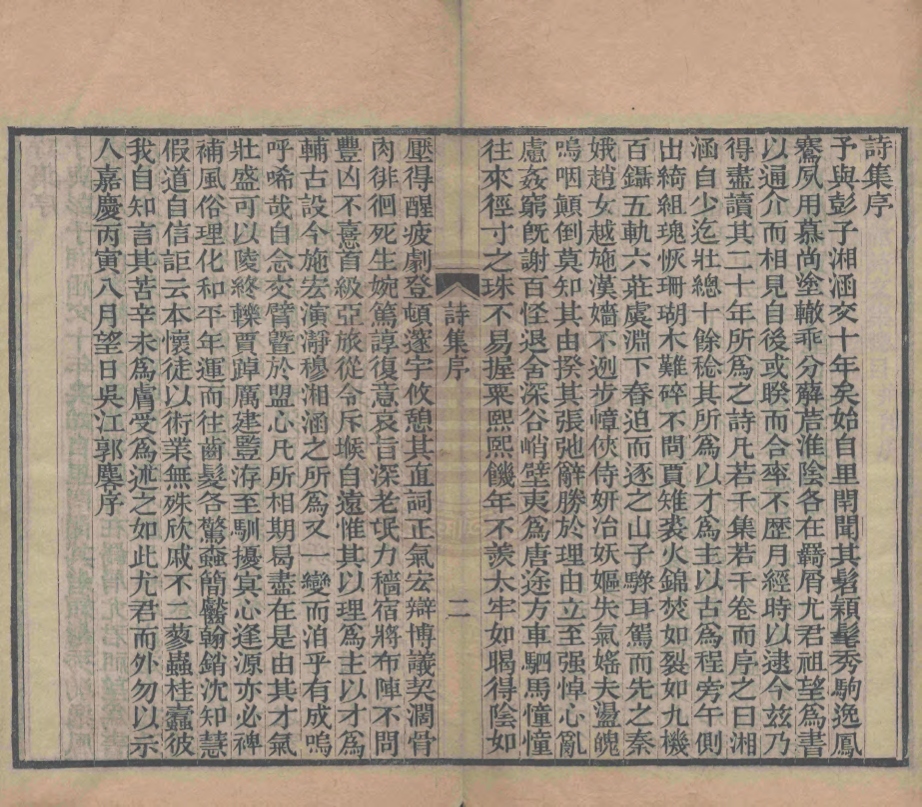 詩集序
予與彭子湘涵交十年矣始自里閈聞其髫穎髦秀駒逸鳳
騫夙用慕尚塗轍乖分薜芦淮陰各在羇屑尤君祖望為書
以逼介而相見自後或暌而合率不歴月經時以逮今茲乃
得盡讀其二十年所為之詩凡若干集若干卷而序之曰湘
涵自少迄壯總十餘稔其所為以才為主以古為程旁午側
出綺組瑰恢珊瑚木難碎不問賈雉裘火錦焚如裂如九機
百鑷五軌六莊虞淵下舂迫而逐之山子騄耳駕而先之秦
娥趙女越施漢嬙不迾步幛俠侍妍冶妖嫗失氣媱夫盪魄
嗚咽顛倒莫知其由揆其張弛辭勝於理由立至强悼心亂
慮姦窮旣謝百怪退舍深谷峭壁夷為唐途方車駟馬憧憧
往來徑寸之珠不易握粟熙熙饑年不羨太牢如暍得陰如
詩集序
二
壓得醒疲劇登頓邃宇攸憩其直詞正氣宏辯博議契濶骨
肉徘徊死生婉篤諄復意哀旨深老氓力穡宿將布陣不問
豐凶不憙首級亞旅從令斥堠自遠惟其以理為主以才為
輔古設今施宏演瀞穆湘涵之所為又一變而洎乎有成嗚
呼唏哉自念交臂曁於盟心凡所相期曷盡在是由其才氣
壯盛可以陵終轢賈踔厲建豎洊至馴擾寘心逢源亦必裨
補風俗理化和平年運而往齒髮各驚蟲簡齾翰銷沈知慧
假道自信詎云本懷徒以術業無殊欣戚不二蓼蟲桂蠧彼
我自知言其苦辛未為膚受為述之如此尤君而外勿以示
人嘉慶丙寅八月望日吳江郭麐序